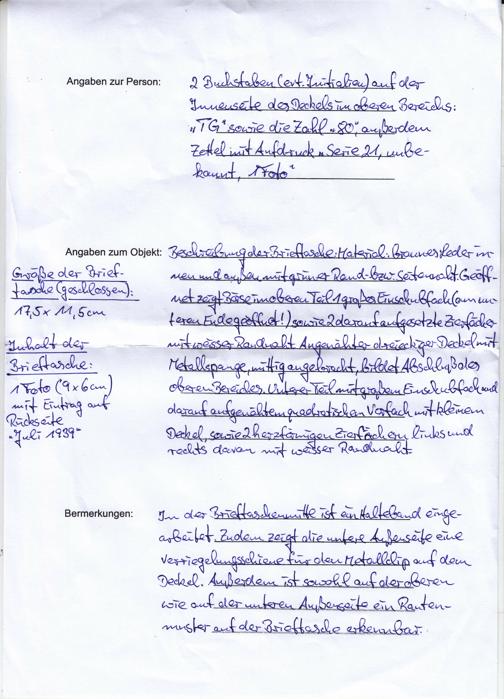 Angaben zur Person:
2 Buchstaben (evt. Initialien) auf der
Innenseite des Deckels im oberen Bereichs:
„TG“ sowie die Zahl „80“, außerdem
Zettel mit Aufdruck „Serie 21, unbe-
kannt, 1 Foto“
Angaben zum Objekt:
Beschreibung der Brieftasche: Material: Braunes Leder in-
nen und außen mit grüner Rand- bzw. Seitennaht. Geöff-
net zeigt Börse im oberen Teil 1 großes Einschubfach (am un-
teren Ende geöffnet!) sowie 2 darauf aufgesetzte Zierfächer
mit weisser Randnaht. Angenähter dreieckiger Deckel mit
Metallspange, mittig angebracht, bildet Abschluß des
oberen Bereiches. Unterer Teil mit großem Einschubfach und
darauf aufgenähtem quadratischen Vorfach mit kleinem
Deckel, sowie 2 herzförmigen Zierfächern links und
rechts davon mit weisser Randnaht.
Größe der Brief-
tasche (geschlossen):
17,5 x 11,5 cm
Inhalt der
Brieftasche:
1 Foto (9 x 6 cm)
mit Eintrag auf
Rückseite
„Juli 1939“
Bermerkungen:
In der Brieftaschenmitte ist ein Halteband einge-
arbeitet. Zudem zeigt die untere Außenseite eine
Verriegelungsschiene für den Metallclip auf dem
Deckel. Außerdem ist sowohl auf der oberen
wie auf der unteren Außenseite ein Rauten-
muster auf der Brieftasche erkennbar.